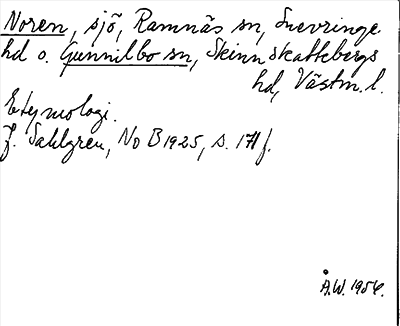 Noren, sjö, Ramnäs sn, Snevringe
hd o. Gunnilbo sn, Skinnskattebergs
hd, Västm. l.
Etymologi.
J. Sahlgren, NoB 1925, s. 171 f.
Å.W. 1956.